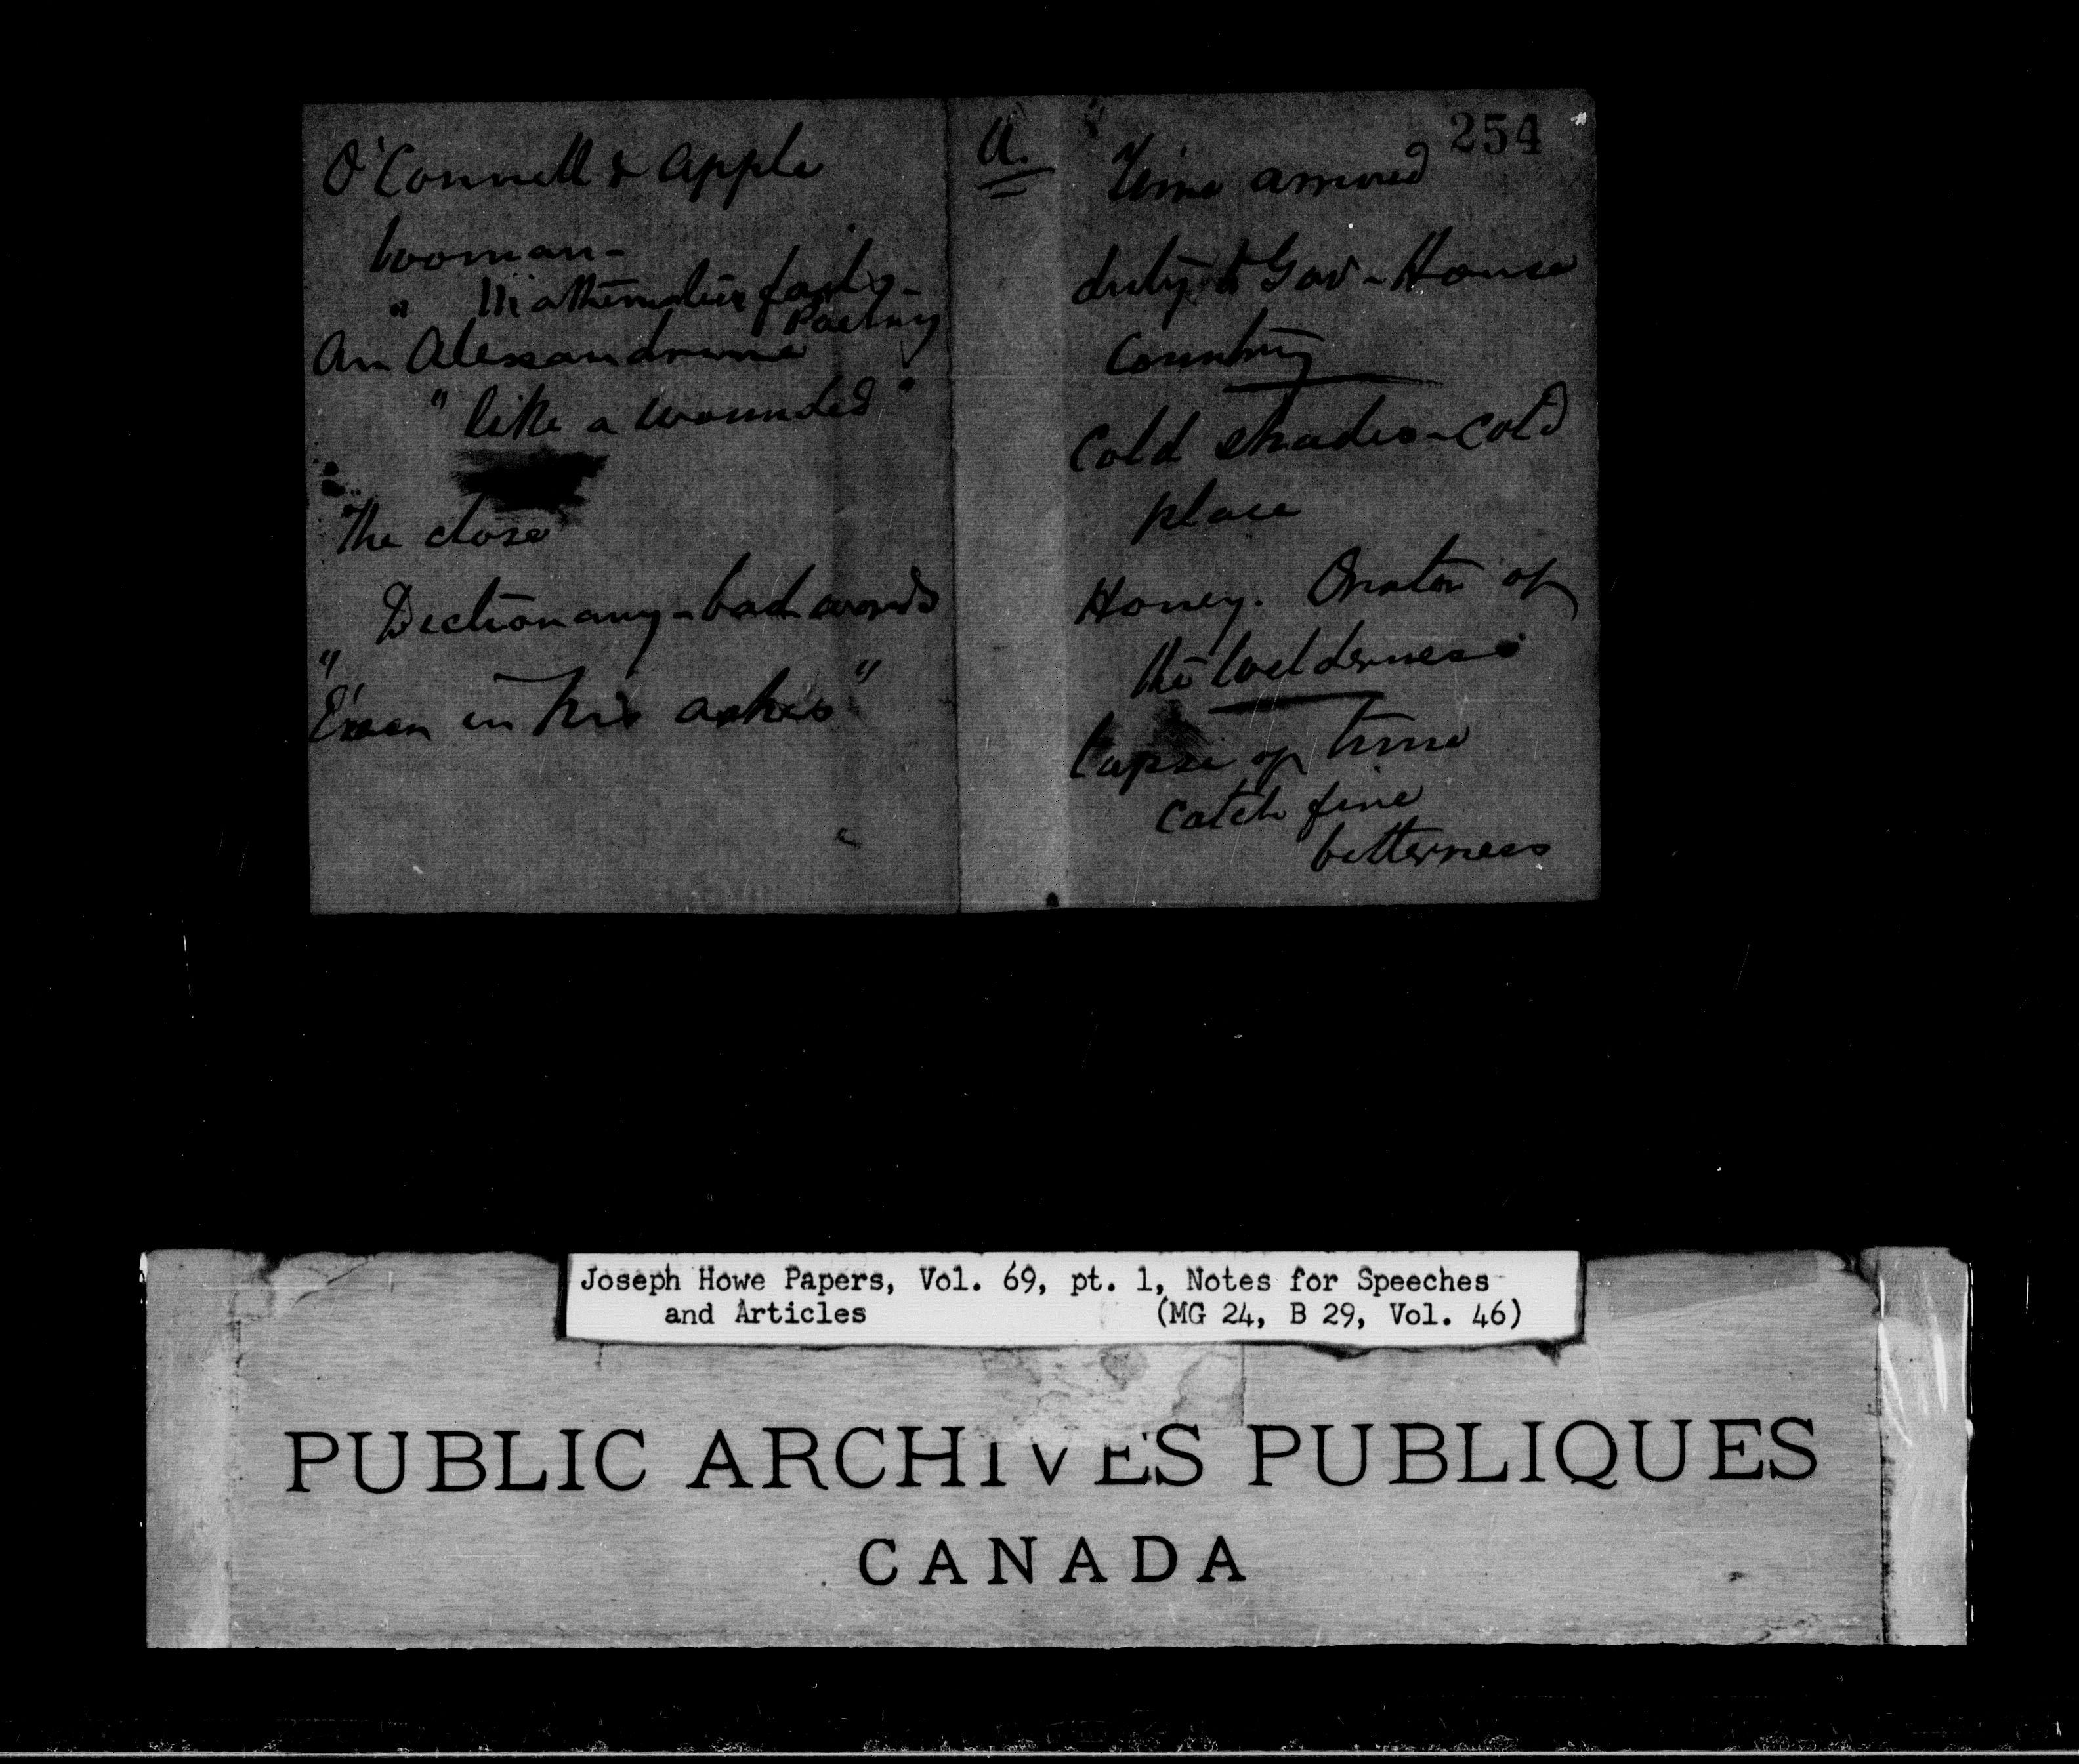 O'Connell & apple
woman-
" Mathematics
Poetry
An Alexandrine
"like a wounded"
"The close
Dictionary - bad words
"E'en in his ashes"
A.
254
Time arrived
duty to Gov - House
Country
Cold shades - cold
place
Honey. Orator of
the Wilderness
Lapse of time
catch fire
bitterness
Joseph Howe Papers, Vol. 69, pt. 1, Notes for Speeches
and Articles (MG 24, B 29, Vol. 46)
PUBLIC ARCHIVES PUBLIQUES
CANADA